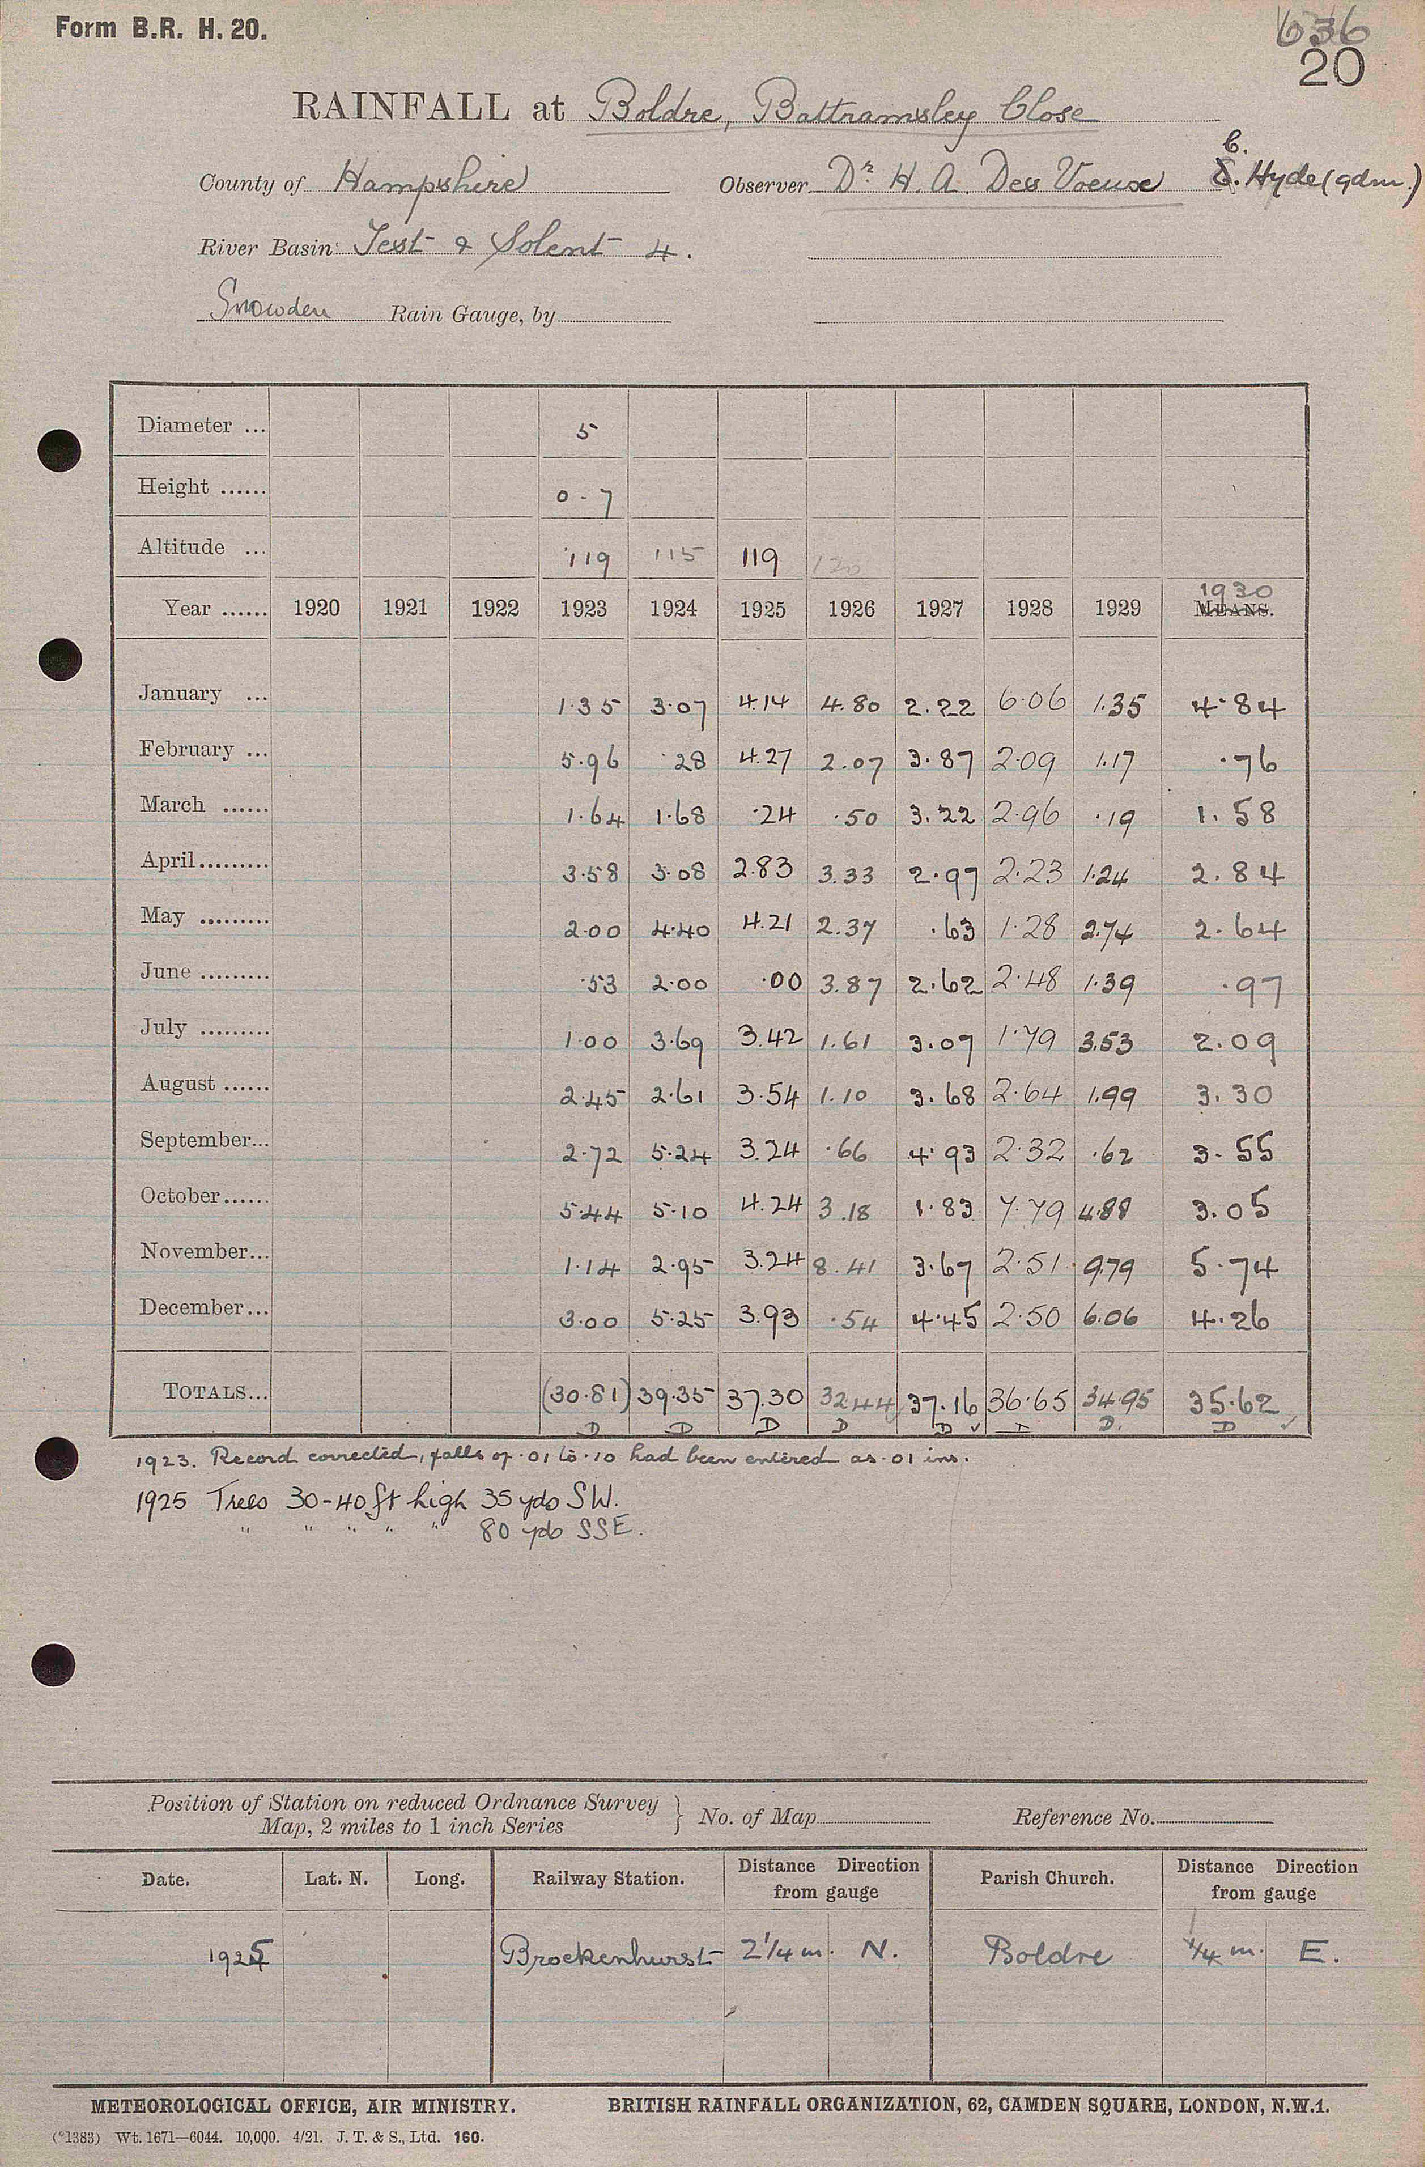 Form B.R. H. 20.
636
20
RAINFALL at Boldre, Battramsley Close
County of Hampshire Observer Dr H. A. Des Voeux C. Hyde (gdnr.)
River Basin Test & Solent 4.
Snowden Rain Gauge, by
Diameter ... 5
Height ...... 0-7
Altitude ... 119 115 119 120
Year ...... 1920 1921 1922 1923 1924 1925 1926 1927 1928 1929 1930 MEANS.
January ... 1.35 3.07 4.14 4.80 2.22 6.06 1.35 4.84
February ... 5.96 .28 4.27 2.07 3.87 2.09 1.17 .76
March ...... 1.64 1.68 .24 .50 3.22 2.96 .19 1.58
April ......... 3.58 3.08 2.83 3.33 2.97 2.23 1.24 2.84
May ......... 2.00 4.40 4.21 2.37 .63 1.28 2.74 2.64
June ......... .53 2.00 .00 3.87 2.62 2.48 1.39 .97
July ......... 1.00 3.69 3.42 1.61 3.07 1.79 3.53 2.09
August ...... 2.45 2.61 3.54 1.10 3.68 2.64 1.99 3.30
September... 2.72 5.24 3.24 .66 4.93 2.32 .62 3.55
October...... 5.44 5.10 4.24 3.18 1.83 7.79 4.88 3.05
November... 1.14 2.95 3.24 8.41 3.67 2.51 9.79 5.74
December... 3.00 5.25 3.93 .54 4.45 2.50 6.06 4.26
TOTALS... (30.81) 39.35 37.30 32.44 37.16 36.65 34.95 35.62
D D D D D ✓ D D. D ✓
1923. Record corrected, falls of .01 to .10 had been entered as .01 ins.
1925 Trees 30-40 ft high 35 yds SW.
" " " " " 80 yds SSE.
Position of Station on reduced Ordnance Survey
Map, 2 miles to 1 inch Series } No. of Map Reference No.
Date. Lat. N. Long. Railway Station. Distance Direction from gauge Parish Church. Distance Direction from gauge
1925 Brockenhurst 2 1/4 m. N. Boldre 1/4 m. E.
METEOROLOGICAL OFFICE, AIR MINISTRY. BRITISH RAINFALL ORGANIZATION, 62, CAMDEN SQUARE, LONDON, N.W.1.
(*1383) Wt. 1671—6044. 10,000. 4/21. J. T. & S., Ltd. 160.